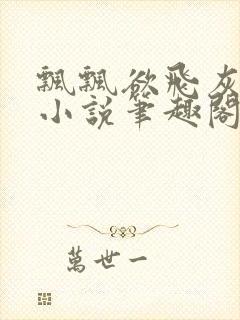 飄飄欲飛灰
小説筆趣閣
萬世一